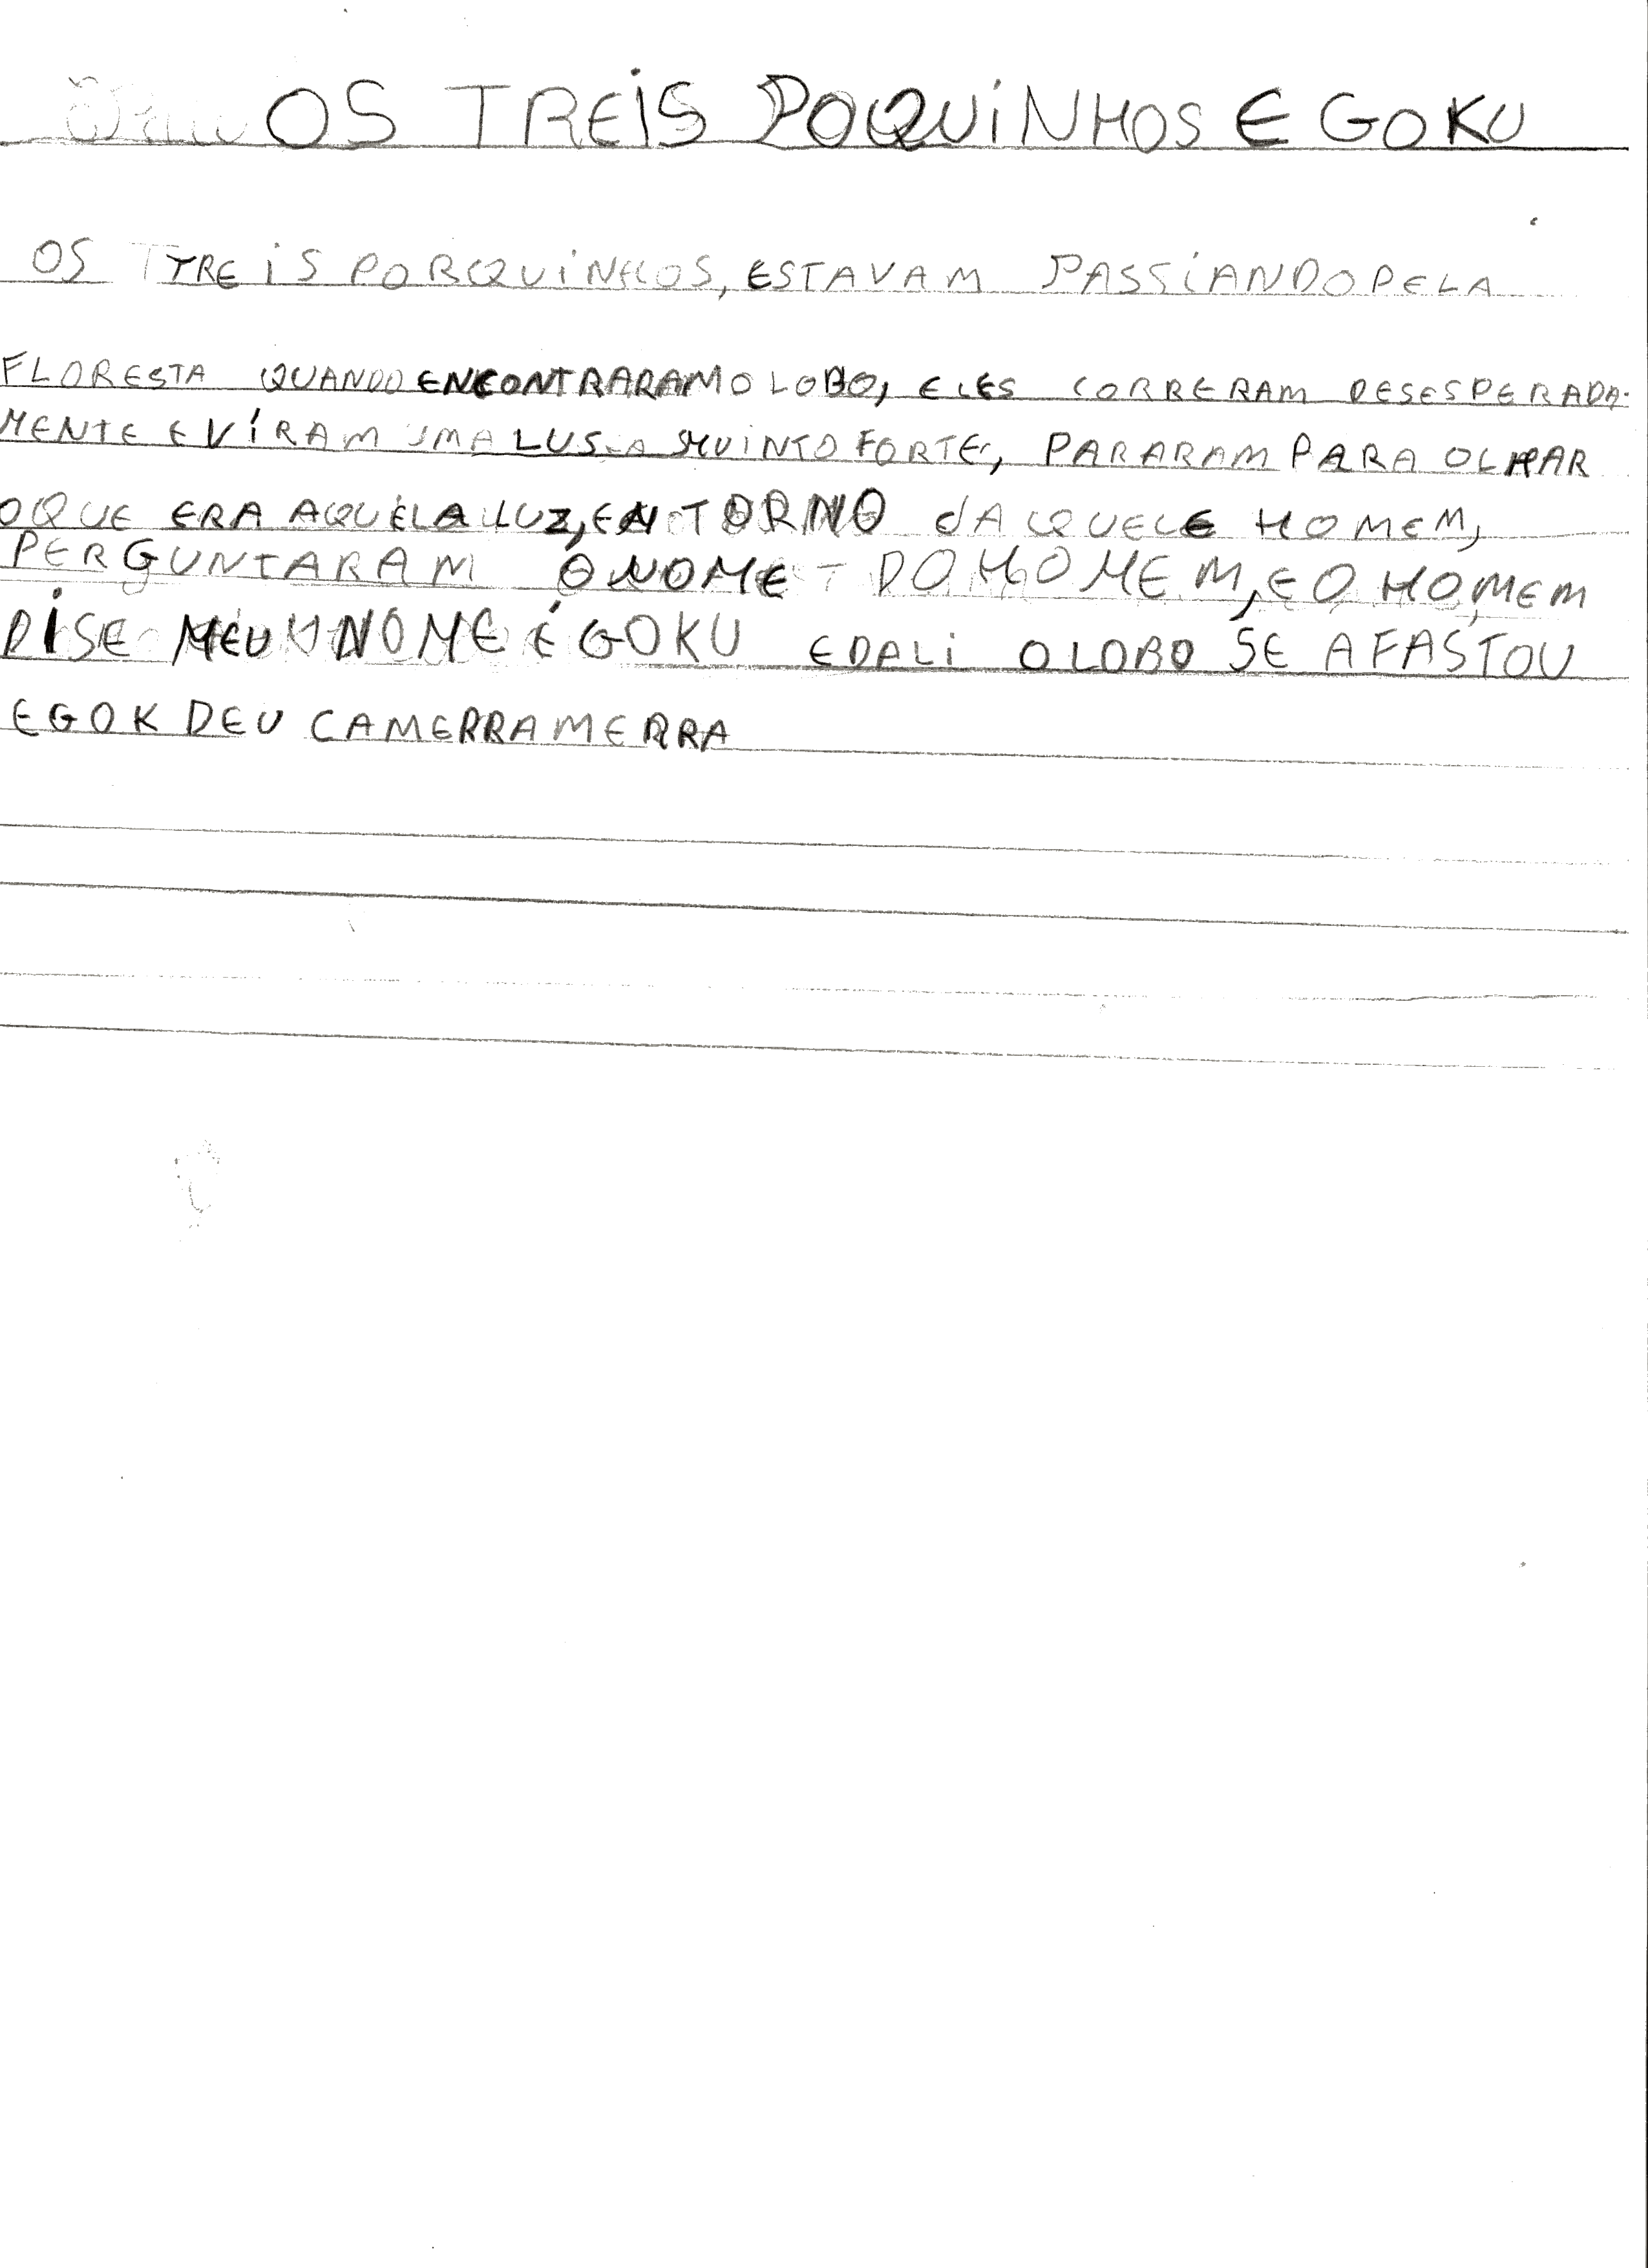 OS TREIS POQUINHOS E GOKU
OS TREIS PORQUINHOS, ESTAVAM PASSIANDO PELA
FLORESTA QUANDO ENCONTRARAM O LOBO, ELES CORRERAM DESESPERADA-
MENTE E VIRAM UMA LUS MUINTO FORTE, PARARAM PARA OLHAR
OQUE ERA AQUELA LUZ, EN TORNO DAQUELE HOMEM,
PERGUNTARAM O NOME DO HOMEM, E O HOMEM
DISE MEU NOME É GOKU E DALI O LOBO SE AFASTOU
E GOK DEU CAMERRAMERRA